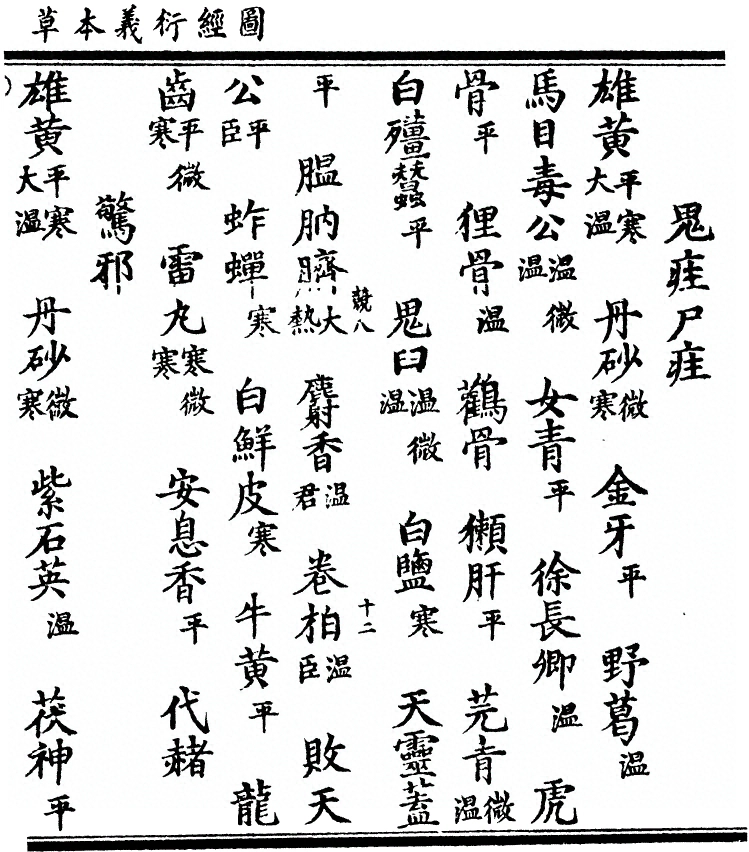 圖經衍義本草
鬼疰尸疰
雄黃平寒大溫 丹砂微寒 金牙平 野葛溫
馬目毒公溫微溫 女青平 徐長卿溫 虎
骨平 狸骨溫 鸛骨 獺肝平 芫青微溫
白殭蠶平 鬼臼溫微溫 白鹽寒 天靈蓋
競八 十二
平 膃肭臍大熱 麝香溫君 卷柏溫臣 敗天
公平臣 蚱蟬寒 白鮮皮寒 牛黃平 龍
齒平微寒 雷丸寒微寒 安息香平 代赭
驚邪
雄黃平寒大溫 丹砂微寒 紫石英溫 茯神平